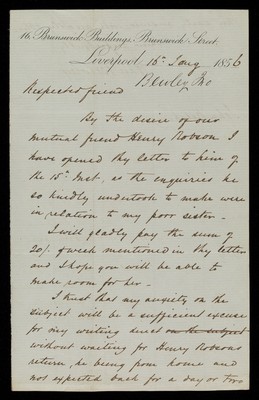 16, Brunswick Buildings, Brunswick Street,
Liverpool, 16th Jany 1856
Respected friend
By the desire of our
mutual friend Henry Robson I
have opened thy letter to him of
the 15th Inst, as the enquiries he
so kindly undertook to make were
in relation to my poor sister -
I will gladly pay the sum of
20/. ⅌ week mentioned in thy letter
and I hope you will be able to
make room for her -
I trust that my anxiety on the
subject will be a sufficient excuse
for my writing direct on the subject
without waiting for Henry Robsons
return, he being from home and
not expected back for a day or two